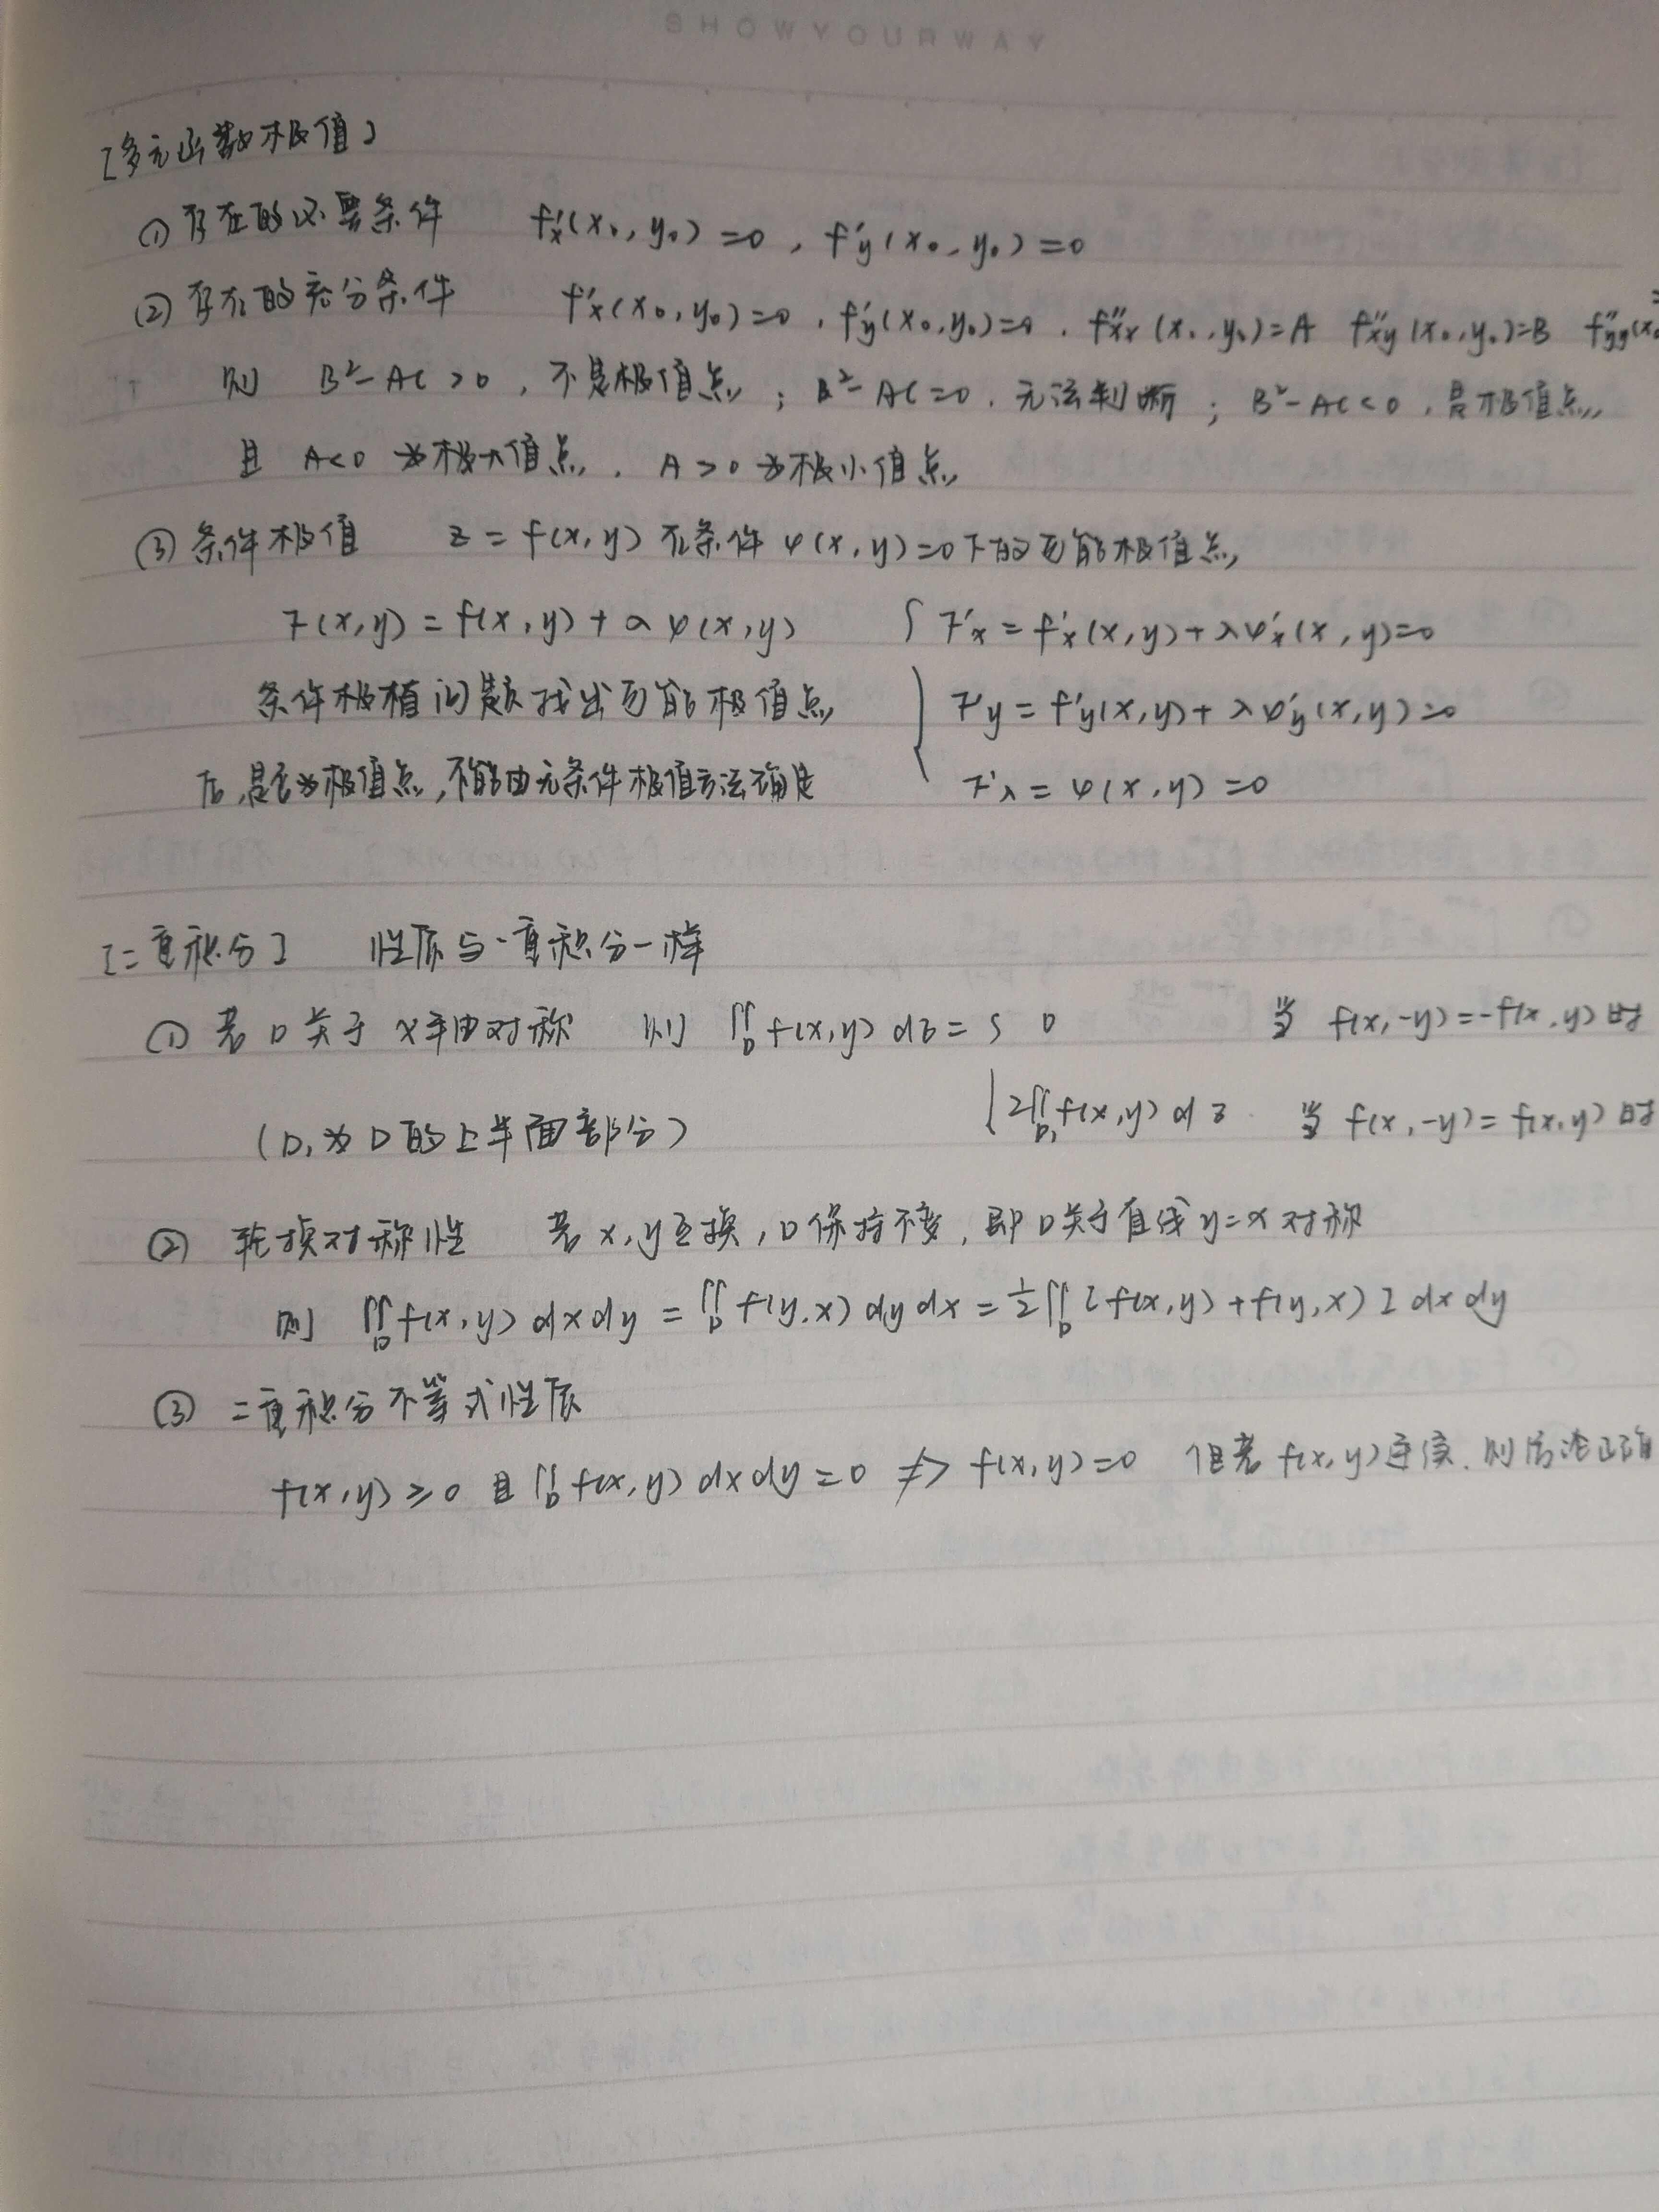 SHOWYOURWAY
[多元函数极值]
① 存在的必要条件 f'x(x₀,y₀)=0, f'y(x₀,y₀)=0
② 存在的充分条件 f'x(x₀,y₀)=0, f'y(x₀,y₀)=0, f''xx(x₀,y₀)=A f''xy(x₀,y₀)=B f''yy(x₀
则 B²-AC>0, 不是极值点; B²-AC=0, 无法判断; B²-AC<0, 是极值点,
且 A<0 为极大值点, A>0 为极小值点
③ 条件极值 z=f(x,y) 在条件 φ(x,y)=0下的可能极值点,
F(x,y)=f(x,y)+λφ(x,y) { F'x=f'x(x,y)+λφ'x(x,y)=0
条件极植问题找出可能极值点 F'y=f'y(x,y)+λφ'y(x,y)=0
后,是否为极值点,不能由无条件极值方法确定 F'λ=φ(x,y)=0
[二重积分] 性质与一重积分一样
① 若D关于x轴对称 则 ∬_D f(x,y)dσ = { 0 当 f(x,-y)=-f(x,y)时
(D₁为D的上半面部分) 2∬_D₁ f(x,y)dσ 当 f(x,-y)=f(x,y)时
② 轮换对称性 若x,y互换,D保持不变,即D关于直线y=x对称
则 ∬_D f(x,y)dxdy=∬_D f(y,x)dydx=½∬_D [f(x,y)+f(y,x)]dxdy
③ 二重积分不等式性质
f(x,y)≥0 且∬_D f(x,y)dxdy=0 ⇏ f(x,y)=0 但若f(x,y)连续,则结论正确